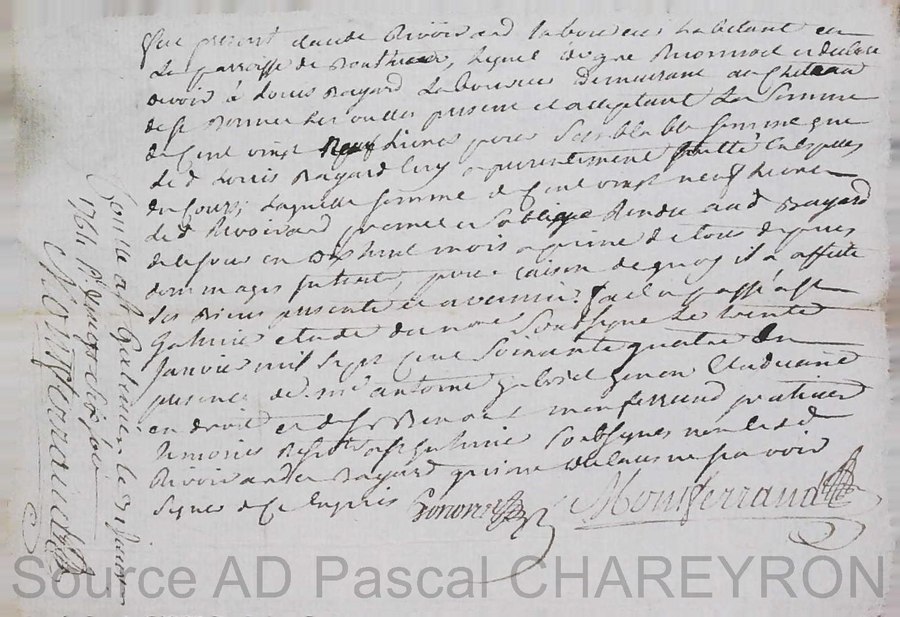 Fut présent Claude Rivoirand laboureur habitant en
la parroisse de Bouthéon, lequel de gré Reconnoit et déclare
devoir à Louis Bayard Laboureur Demeurant au Château
de St Bonnet les oulles présent et acceptant La Somme
de Cent vingt Neuf Livres pour Semblable somme que
led Louis Bayard luy a présentement prêtté en espèces
du Cours, laquelle somme de Cent vingt neuf Livres
led Rivoirand promet et s'oblige Rendre aud Bayard
de ce jour en mois à peine de tous dépens
dommages intérêts, pour raison de quoy il a affecté
Ses Biens présents et avenir. fait et passé à St
Galmier étude du not. Soussigné Le trente
Janvier mil Sept Cent Soixante quatre En
présence de Mr antoine Gabriel Etudiant
en droit et de Sr Benoit montferrand praticien
Témoins Résid. à St Galmier Soussignés non lesd
Rivoirand et Bayard qui ont déclaré ne sçavoir
Signer de ce enquis
Montferrand
Controllé à St Galmier le Janvier
1764
Montferrand
Source AD Pascal CHAREYRON